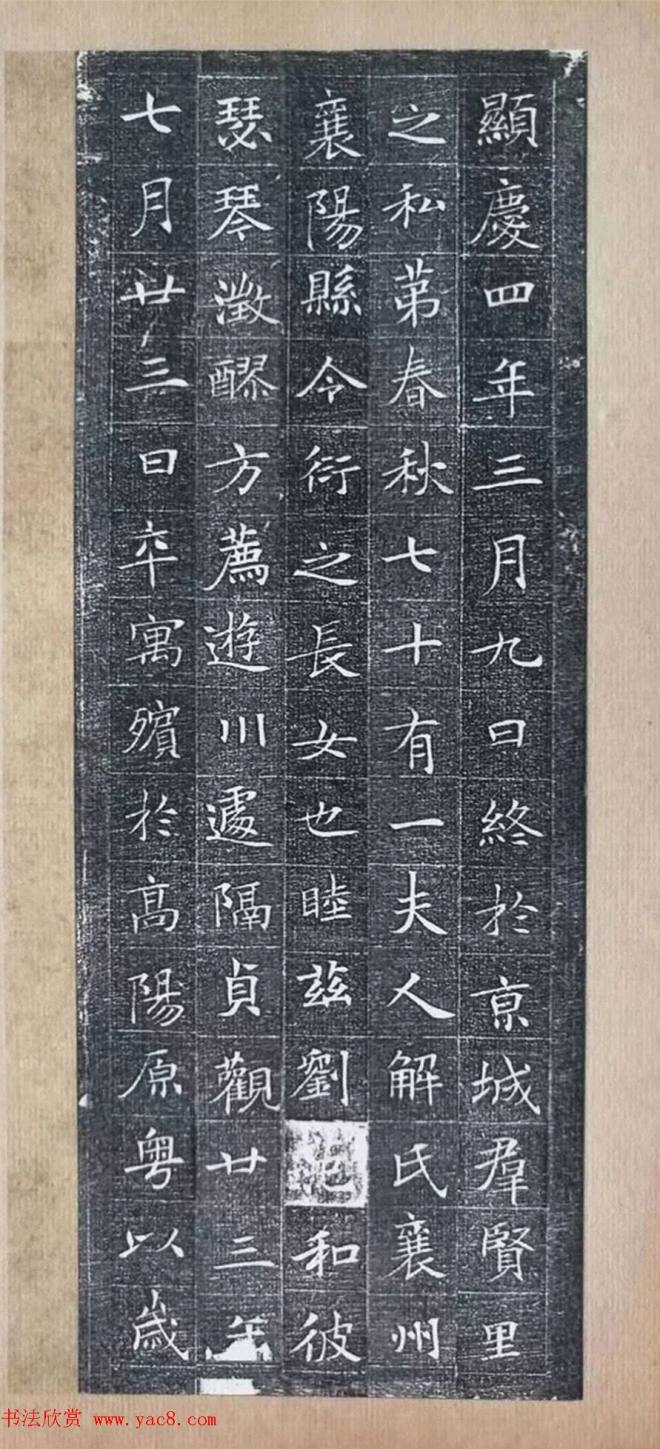 顯慶四年三月九日終於京城羣賢里
之私苐春秋七十有一夫人解氏襄州
襄陽縣令衍之長女也睦茲劉和彼
瑟琴澂醪方薦遊川遽隔貞觀廿三年
七月廿三日卒寓殯於高陽原粤以歲
书法欣赏 www.yac8.com